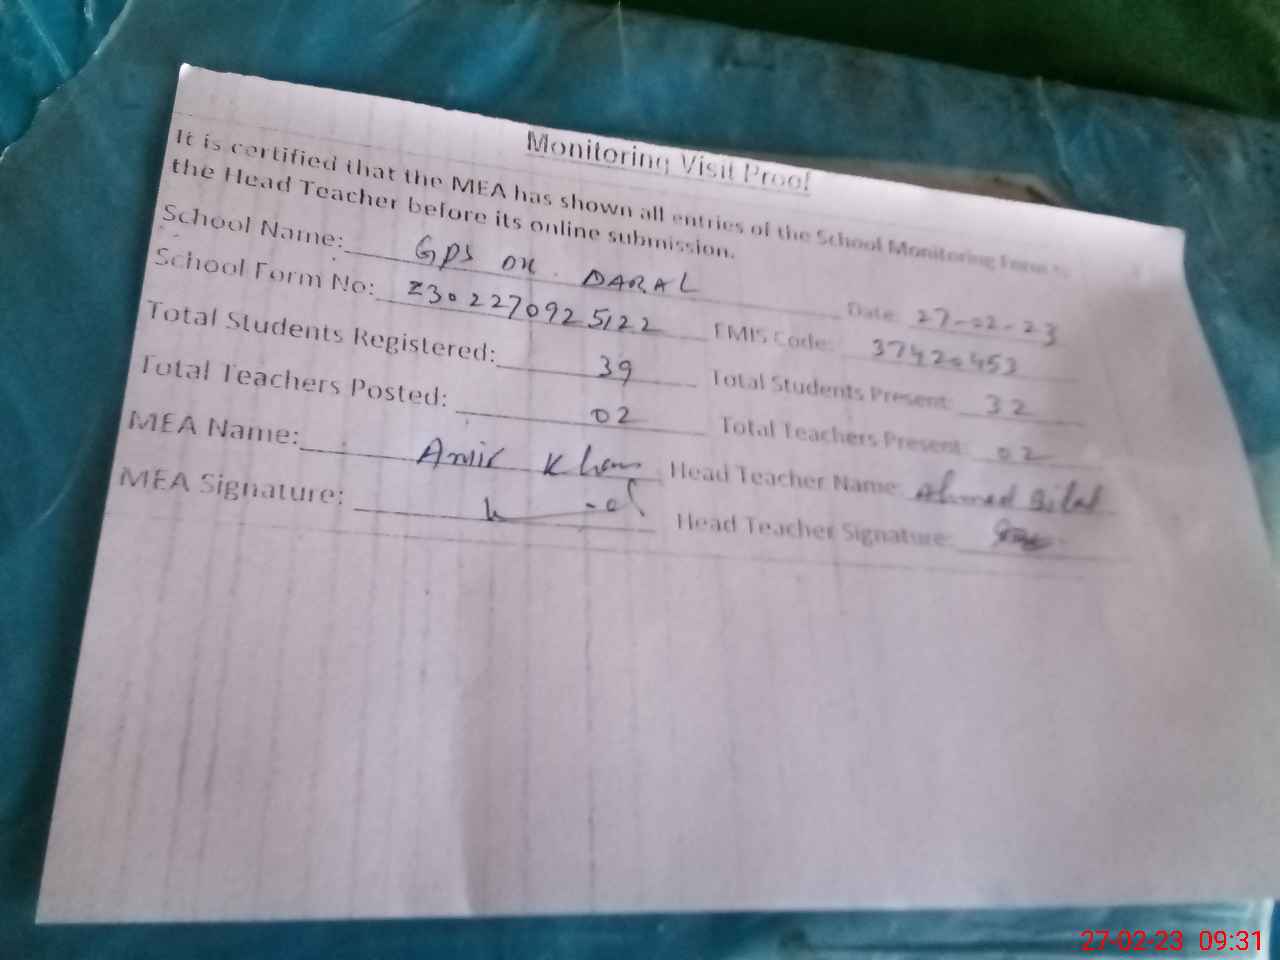 Monitoring Visit Proof
It is certified that the MEA has shown all entries of the School Monitoring Form to
the Head Teacher before its online submission.
School Name: GPS DK. DARAL Date: 27-02-23
School Form No: 2302270925122 EMIS Code: 37420453
Total Students Registered: 39 Total Students Present: 32
Total Teachers Posted: 02 Total Teachers Present: 02
MEA Name: Amir Khan Head Teacher Name: Ahmed Bilal
MEA Signature: Head Teacher Signature:
27-02-23 09:31